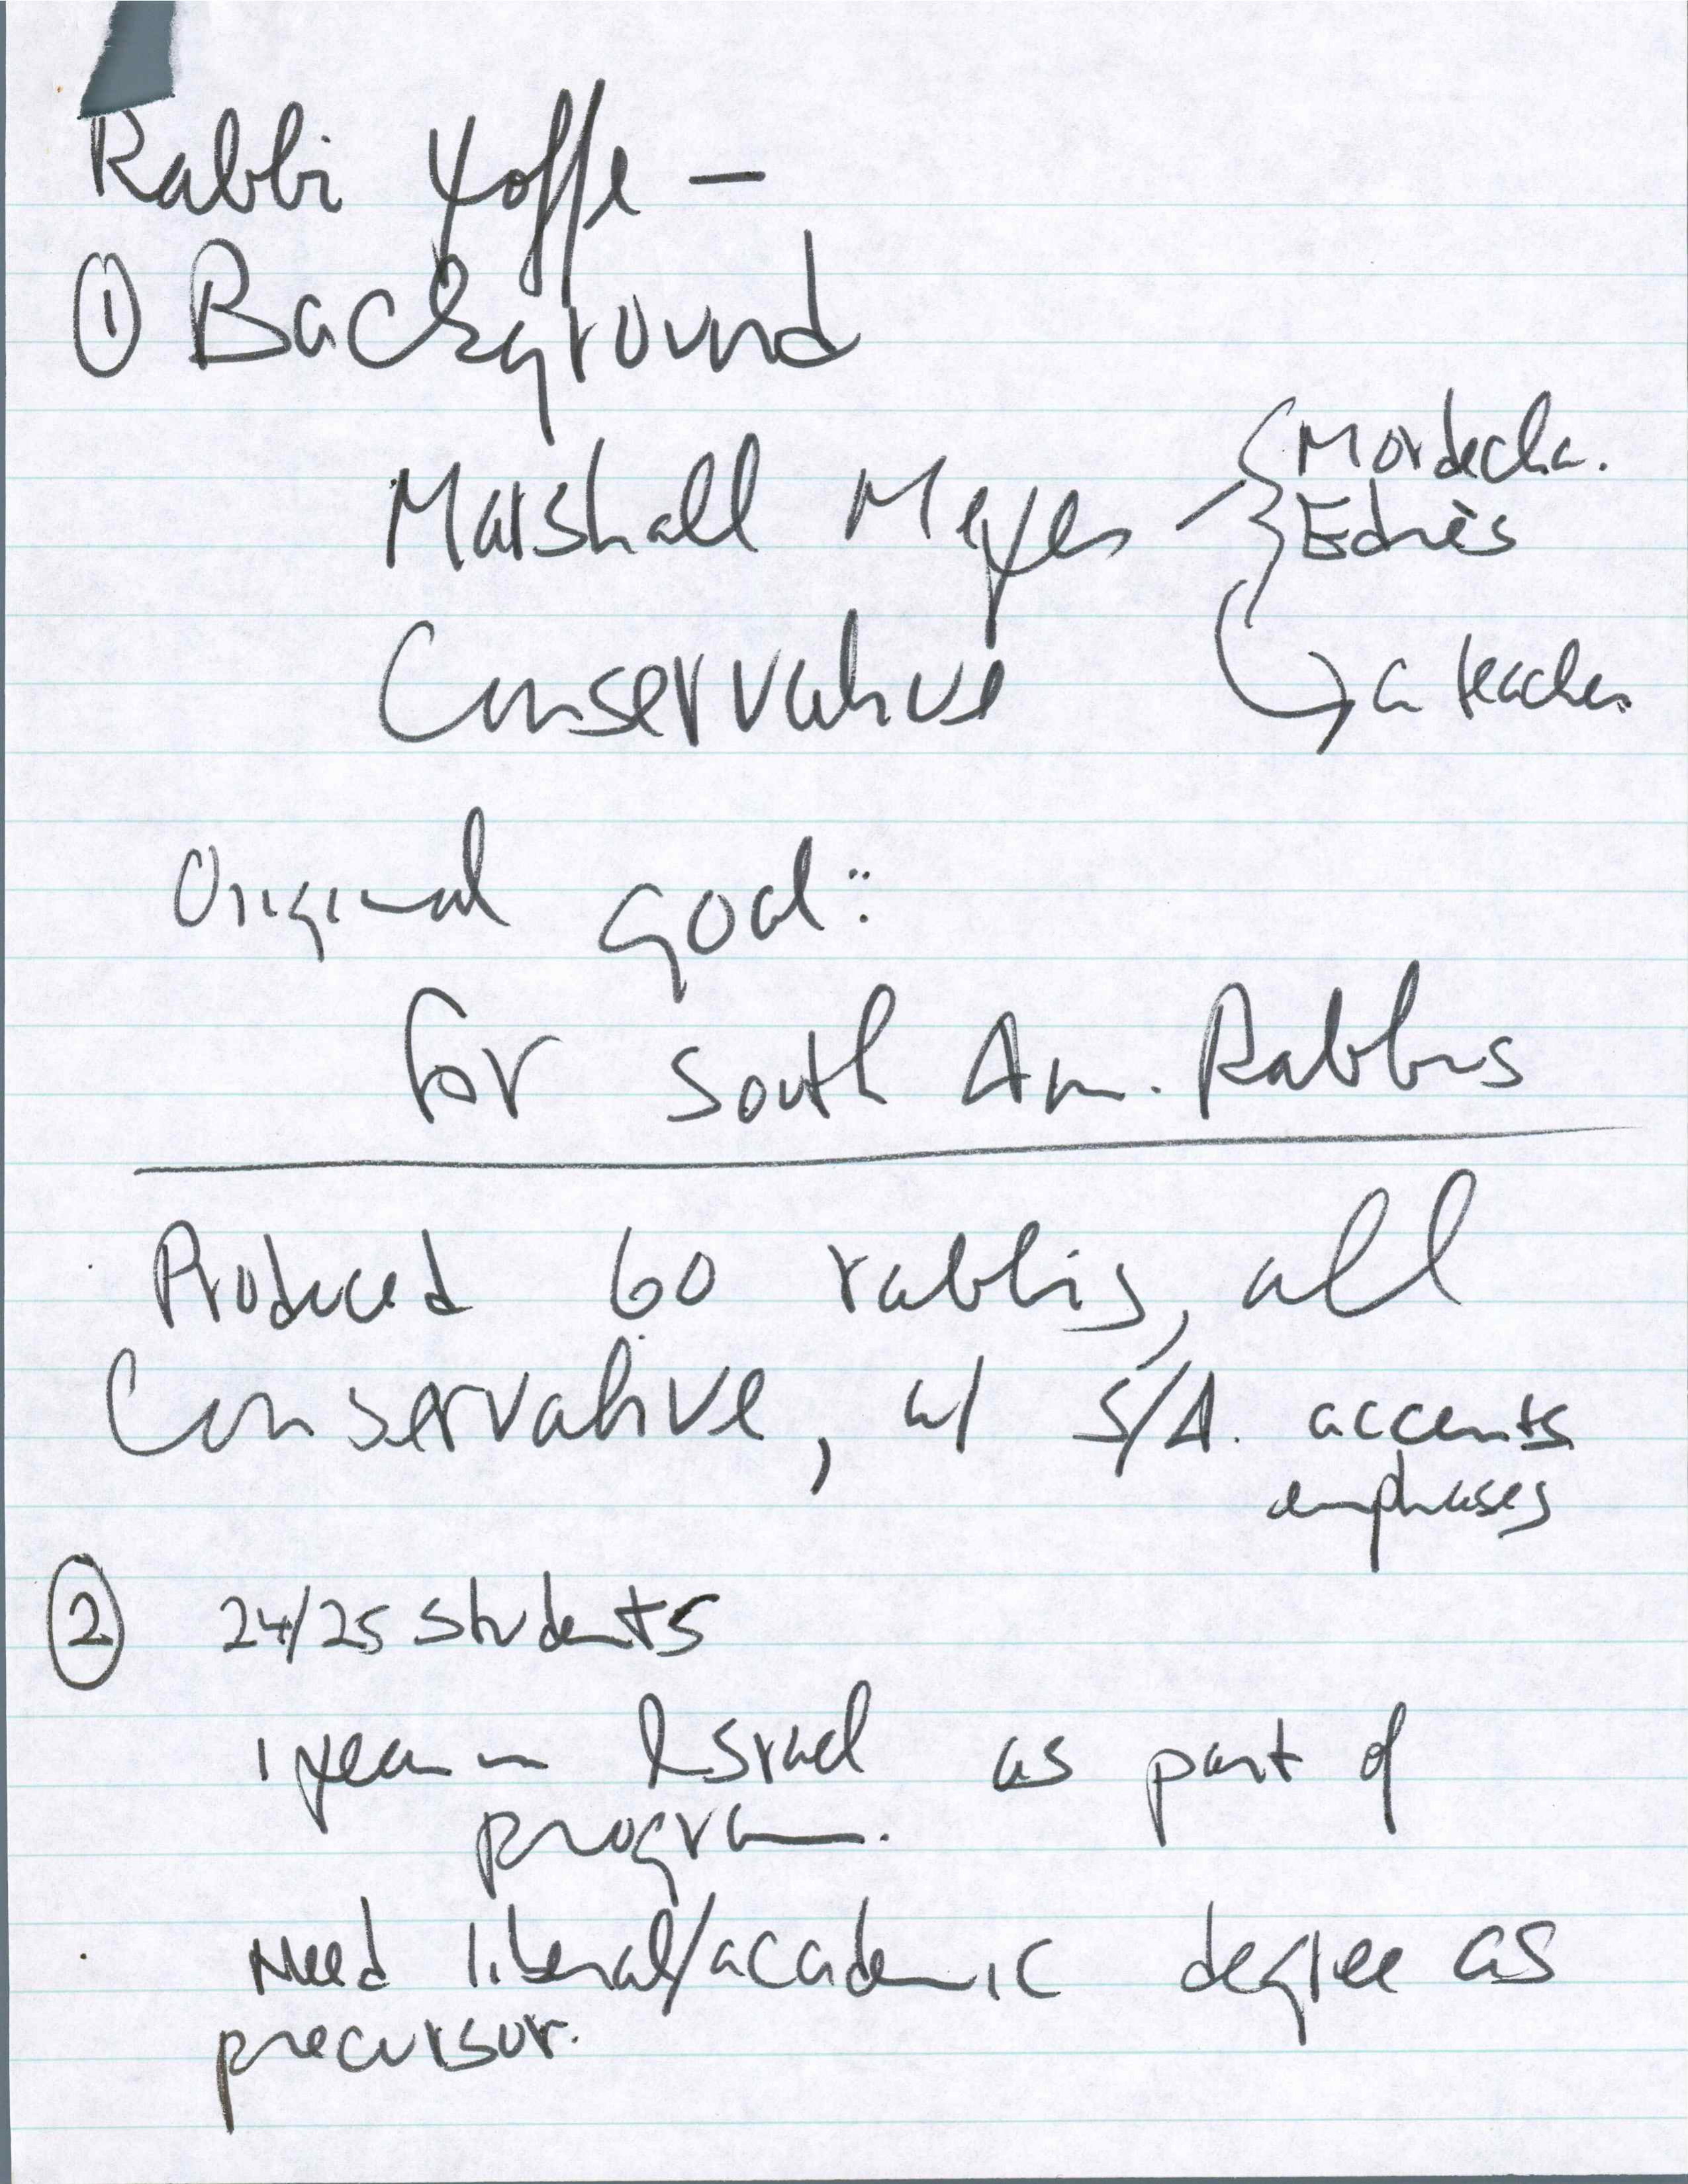 Rabbi Yoffe —
① Background
Marshall Meyer — { Mordecha.
Edriès
Conservative → a teacher.
Original goal:
for South Am. Rabbis
Produced 60 rabbis, all
Conservative, w/ S/A. accents
emphases
② 24/25 students
1 year in Israel as part of
program.
Need liberal/academic degree as
precursor.